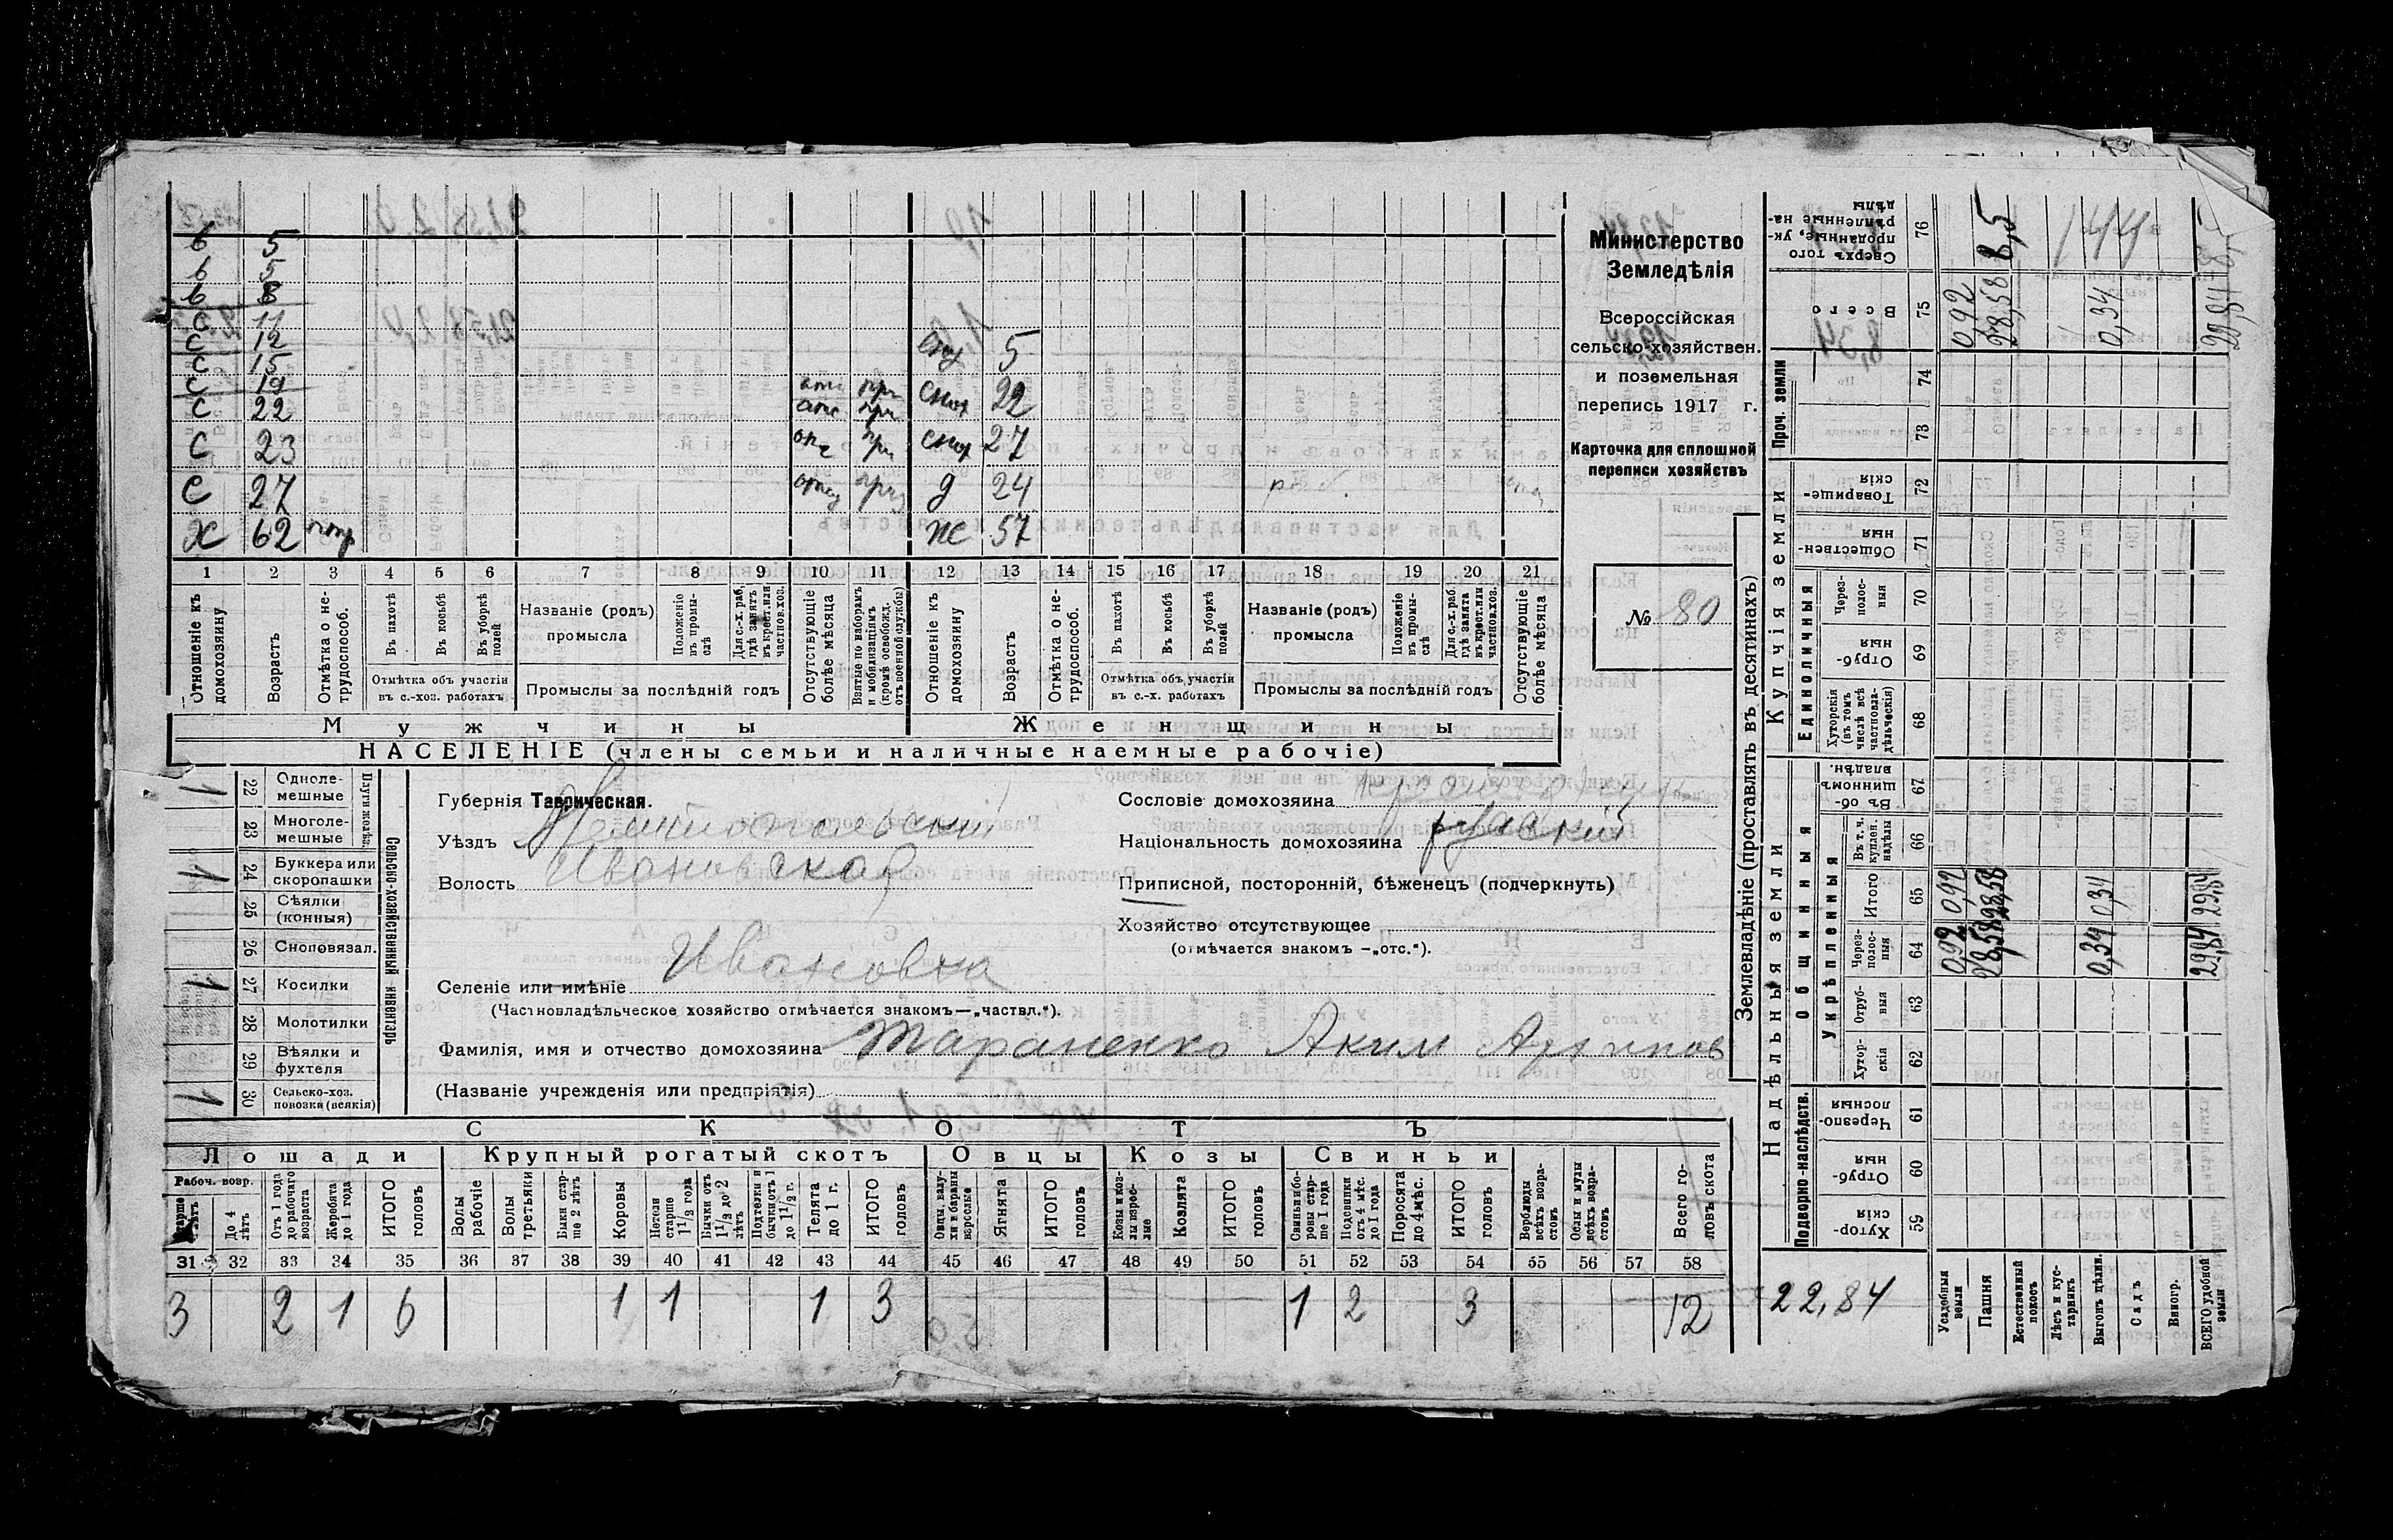 в 5
в 5
в 8
с 11
с 12
с 15
с 19
с 22
с 23
с 27
х 62
5
снох 22
снох 27
д 24
ж 57
1 2 3 4 5 6 7 8 9 10 11 12 13 14 15 16 17 18 19 20 21
Отношеніе къ домохозяину
Возрастъ
Отмѣтка о нетрудоспособ.
Въ пахотѣ
Въ косьбѣ
Въ уборкѣ полей
Отмѣтка объ участіи въ с.-хоз. работахъ
Названіе (родъ) промысла
Положеніе въ промыслѣ
Для с.-х. раб. гдѣ занятъ въ крест. или частнов. хоз.
Промыслы за послѣдній годъ
Отсутствующіе болѣе мѣсяца
Взятые по наборамъ и мобилизаціямъ (кромѣ освобожд. отъ военной службы)
Отношеніе къ домохозяину
Возрастъ
Отмѣтка о нетрудоспособ.
Въ пахотѣ
Въ косьбѣ
Въ уборкѣ полей
Отмѣтка объ участіи въ с.-х. работахъ
Названіе (родъ) промысла
Положеніе въ промыслѣ
Для с.-х. раб. гдѣ занята въ крест. или частнов. хоз.
Промыслы за послѣдній годъ
Отсутствующіе болѣе мѣсяца
Мужчины Женщины
НАСЕЛЕНІЕ (члены семьи и наличные наемные рабочіе)
Министерство
Земледѣлія
Всероссійская
сельско-хозяйствен.
и поземельная
перепись 1917 г.
Карточка для сплошной
переписи хозяйствъ
№ 80
1 22 Однолемешные
23 Многолемешные
Плуги желѣз.
1 24 Буккера или скоропашки
25 Сѣялки (конныя)
26 Сноповязал.
1 27 Косилки
28 Молотилки
29 Вѣялки и фухтеля
1 30 Сельско-хоз. повозки (всякія)
Сельско-хозяйственный инвентарь
Губернія Таврическая.
Уѣздъ Мелитопольскій
Волость Ивановская
Сословіе домохозяина
Національность домохозяина русский
Приписной, посторонній, бѣженецъ (подчеркнуть)
Хозяйство отсутствующее
(отмѣчается знакомъ —„отс.“).
Селеніе или имѣніе Ивановка
(Частновладѣльческое хозяйство отмѣчается знакомъ—„частвл.“).
Фамилія, имя и отчество домохозяина Тараненко Аким Архипов
(Названіе учрежденія или предпріятія)
СКОТЪ
Лошади Крупный рогатый скотъ Овцы Козы Свиньи
Рабоч. возр.
До 4 лѣтъ
Отъ 1 года до рабочаго возраста
Жеребята до 1 года
ИТОГО головъ
Волы рабочіе
Волы третьяки
Быки старше 2 лѣтъ
Коровы
Нетели старше 1½ года
Бычки отъ 1½ до 2 лѣтъ
Подтелки и бычки отъ 1 до 1½ г.
Телята до 1 г.
ИТОГО головъ
Овцы, валухи и бараны взрослые
Ягнята
ИТОГО головъ
Козы и козлы взрослые
Козлята
ИТОГО головъ
Свиньи и боровы старше 1 года
Подсвинки отъ 4 мѣс. до 1 года
Поросята до 4 мѣс.
ИТОГО головъ
Верблюды всѣхъ возрастовъ
Ослы и мулы всѣхъ возрастовъ
Всего головъ скота
31 32 33 34 35 36 37 38 39 40 41 42 43 44 45 46 47 48 49 50 51 52 53 54 55 56 57 58
3 2 1 6 1 1 1 3 1 2 3 12
Землевладѣніе (проставлять въ десятинахъ)
Надѣльныя земли Купчія земли Проч. земли
Подворно-наслѣдств.
Общинныя
Укрѣпленныя
Единоличныя
Сверхъ того проданные, укрѣпленные надѣлы 76 8,5
Всего 75 0,92 28,58 0,34 29,84
74
73
Товарищескія 72
Общественныя 71
Черезполосныя 70
Отрубныя 69
Хуторскія (въ томъ числѣ всѣ частновладѣльческія) 68
Въ общинномъ владѣн. 67
Въ т. ч. куплен. надѣлы 66
Итого 65 0,92 28,58 0,34 29,84
Черезполосныя 64 0,92 28,58 0,34 29,84
Отрубныя 63
Хуторскія 62
Черезполосныя 61
Отрубныя 60
Хуторскія 59
22,84
Усадебныя земли
Пашня
Естественный покосъ
Лѣсъ и кустарникъ
Выгонъ цѣлин.
Садъ
Виногр.
ВСЕГО удобной земли